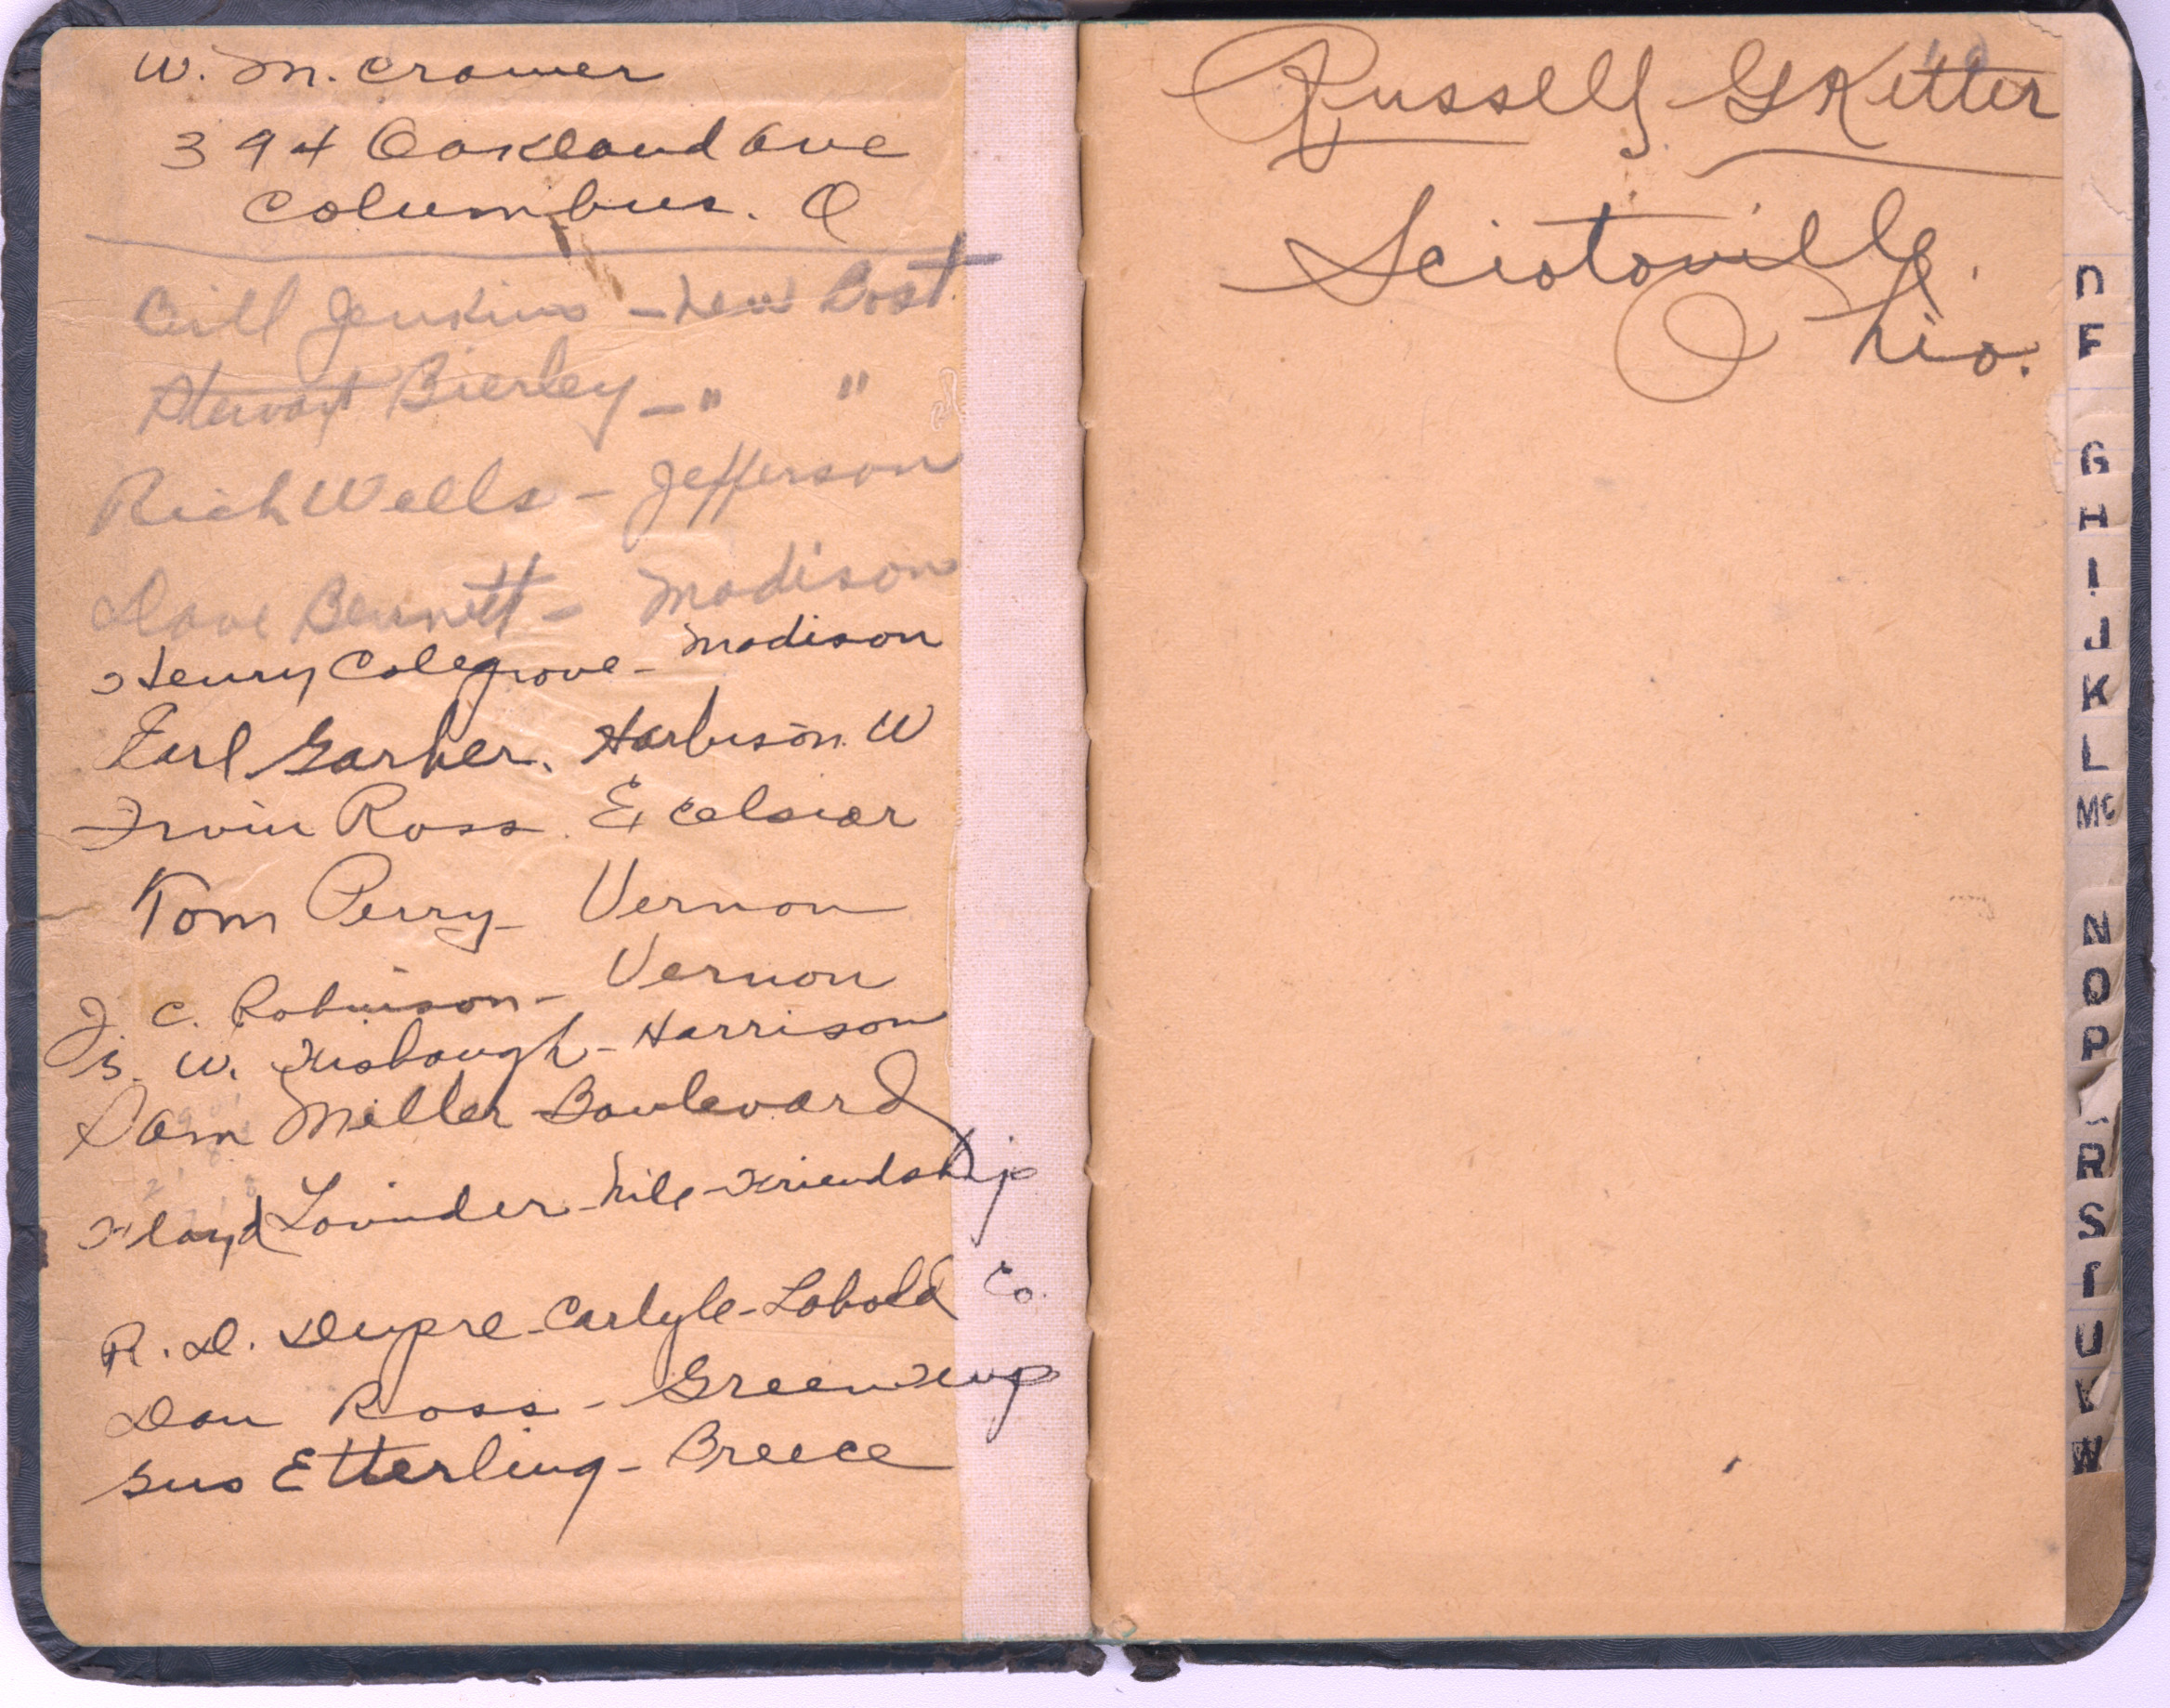 W. M. Cramer
394 Oakland Ave
Columbus. O
Cecill Jenkins - New Bost.
Stewart Bierley - " "
Rich Wells - Jefferson
Dave Bennett - Madison
Henry Colegrove - Madison
Earl Garher. Harbison. W
Irvin Ross. Excelsior
Tom Perry - Vernon
J. C. Robinson - Vernon
W. Fisbaugh - Harrison
Sam Miller - Boulevard
Floyd Lovinder - Nile - Friendship
R. D. Dupre - Carlyle - Lobold Co.
Dan Ross - Greenup
Gus Etterling - Breece
Russell G Ketter
Sciotoville,
Ohio.
F
G
H
I
J
K
L
MC
N
O
P
R
S
U
V
W